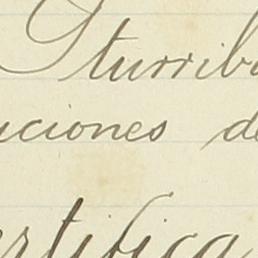 Iturriba
uciones de
ertifica